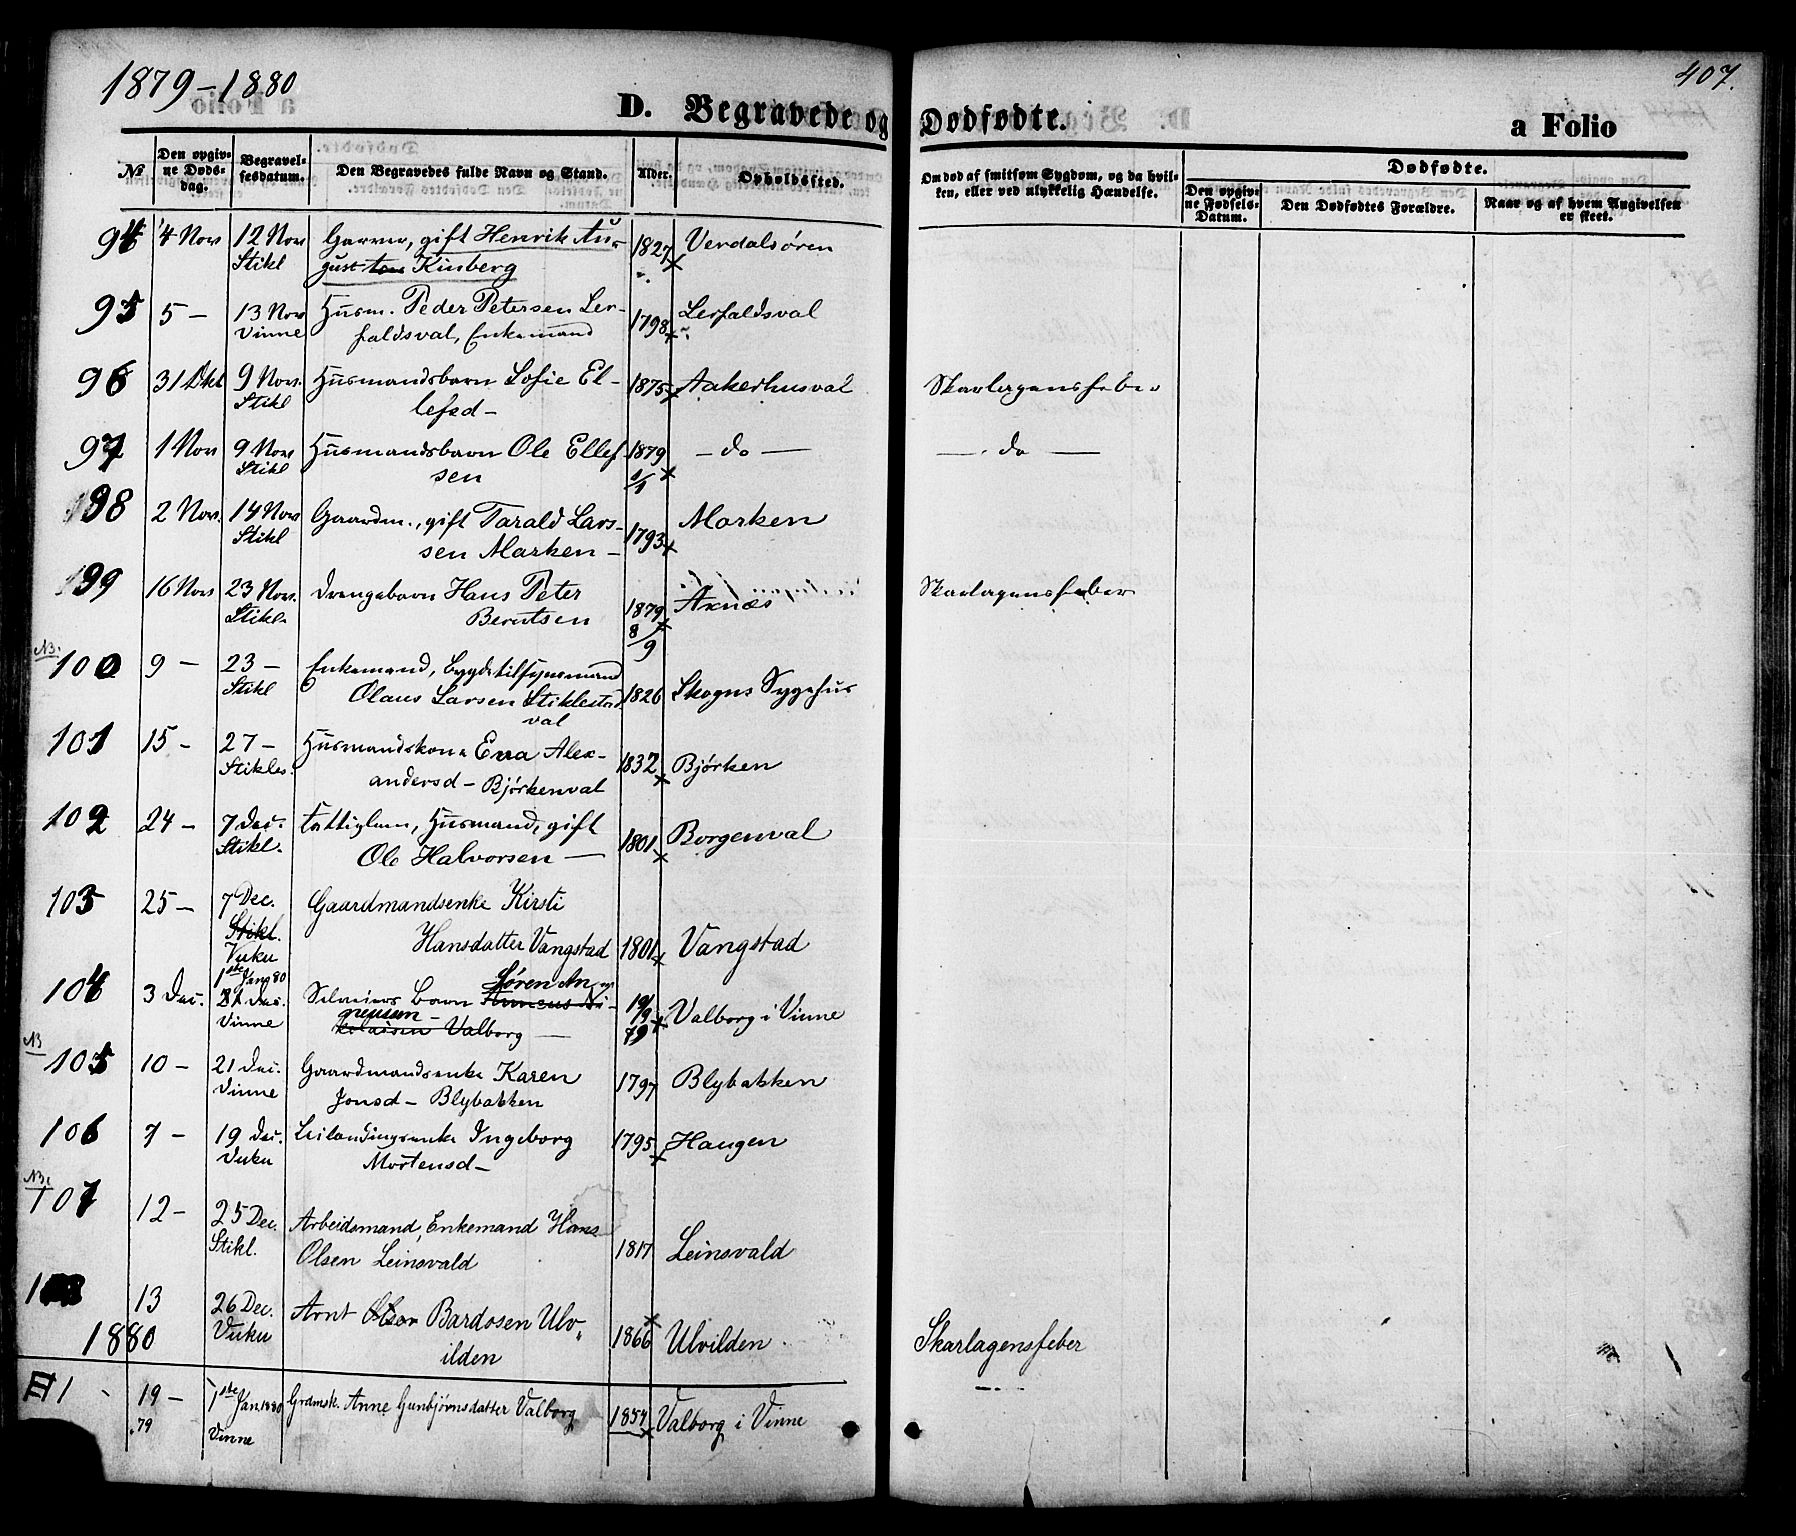 1879-1880
407.
D. Begravede og Dødfødte.
a Folio
No
Den opgivne Dødsdag.
Begravelsesdatum.
Den Begravedes fulde Navn og Stand.
Alder.
Opholdssted.
Om død af smitsom Sygdom, og da hvilken, eller ved ulykkelig Hændelse.
Dødfødte.
Den opgivne Fødsels-Datum.
Den Dødfødtes Forældre.
Naar og af hvem Angivelsen er skeet.
94 4 Nov 12 Nov Garver, gift Henrik Au- 1827 Verdalsøren
Stikl gust Kinberg
95 5 — 13 Nov Husm. Peder Petersen Ler- 1798 Lerfaldsval
Vinne faldsval, Enkemand
96 31 Okt 9 Nov. Husmandsbarn Sofie El- 1875 Aakerhusval Skarlagensfeber
Stikl lefsd-
97 1 Nov 9 Nov Husmandsbarn Ole Ellef 1879 - do - - do -
Stikl sen 1/1
98 2 Nov. 14 Nov Gaardm., gift Tarald Lars- 1793 Marken
Stikl sen Marken -
99 16 Nov 23 Nov. Drengebarn Hans Peter 1879 Axnæs Skarlagensfeber
Stikl. Berntsen 8/9
NB.
100 9 — 23 — Enkemand, bygdetilsynsmand
Stikl Olaus Larsen Stiklestad 1826 Skogns Sygehus
val
101 15 - 27 - Husmandskone Erra Alex- 1832 Bjørken
Stikles. andersd - Bjørkenval
102 24 - 7 Dec. Fattiglem, Husmand, gift 1801 Borgenval
Stikl. Ole Halvorsen —
103 25 - 7 Dec. Gaardmandsenke Kirsti
Stikl. Hansdatter Vangstad 1801 Vangstad
Vuku
104 3 Dec. 1ste Jan 80 Søren An
21 Dec. Selveiers Barn 19/9 Valborg i Vinne
Vinne Valborg — 79
NB
105 10 - 21 Dec. Gaardmandsenke Karen 1797 Blybakken
Vinne Jonsd - Blybakken
106 7 - 19 Dec. Leilendingsenke Ingeborg 1795 Haugen
Vuku Mortensd -
NB.
107 12 - 25 Dec. Arbeidsmand, Enkemand Hans
Stikl. Olsen Leinsvald 1817 Leinsvald
108 13 26 Dec. Arnt Olsen Bardosen Ulv- 1866 Ulvilden Skarlagensfeber
1880 Vuku ilden
1 19 - 1ste Jan. 1880 Gaardmsk. Anne Gunbjørnsdatter Valborg 1854 Valborg i Vinne
79 Vinne